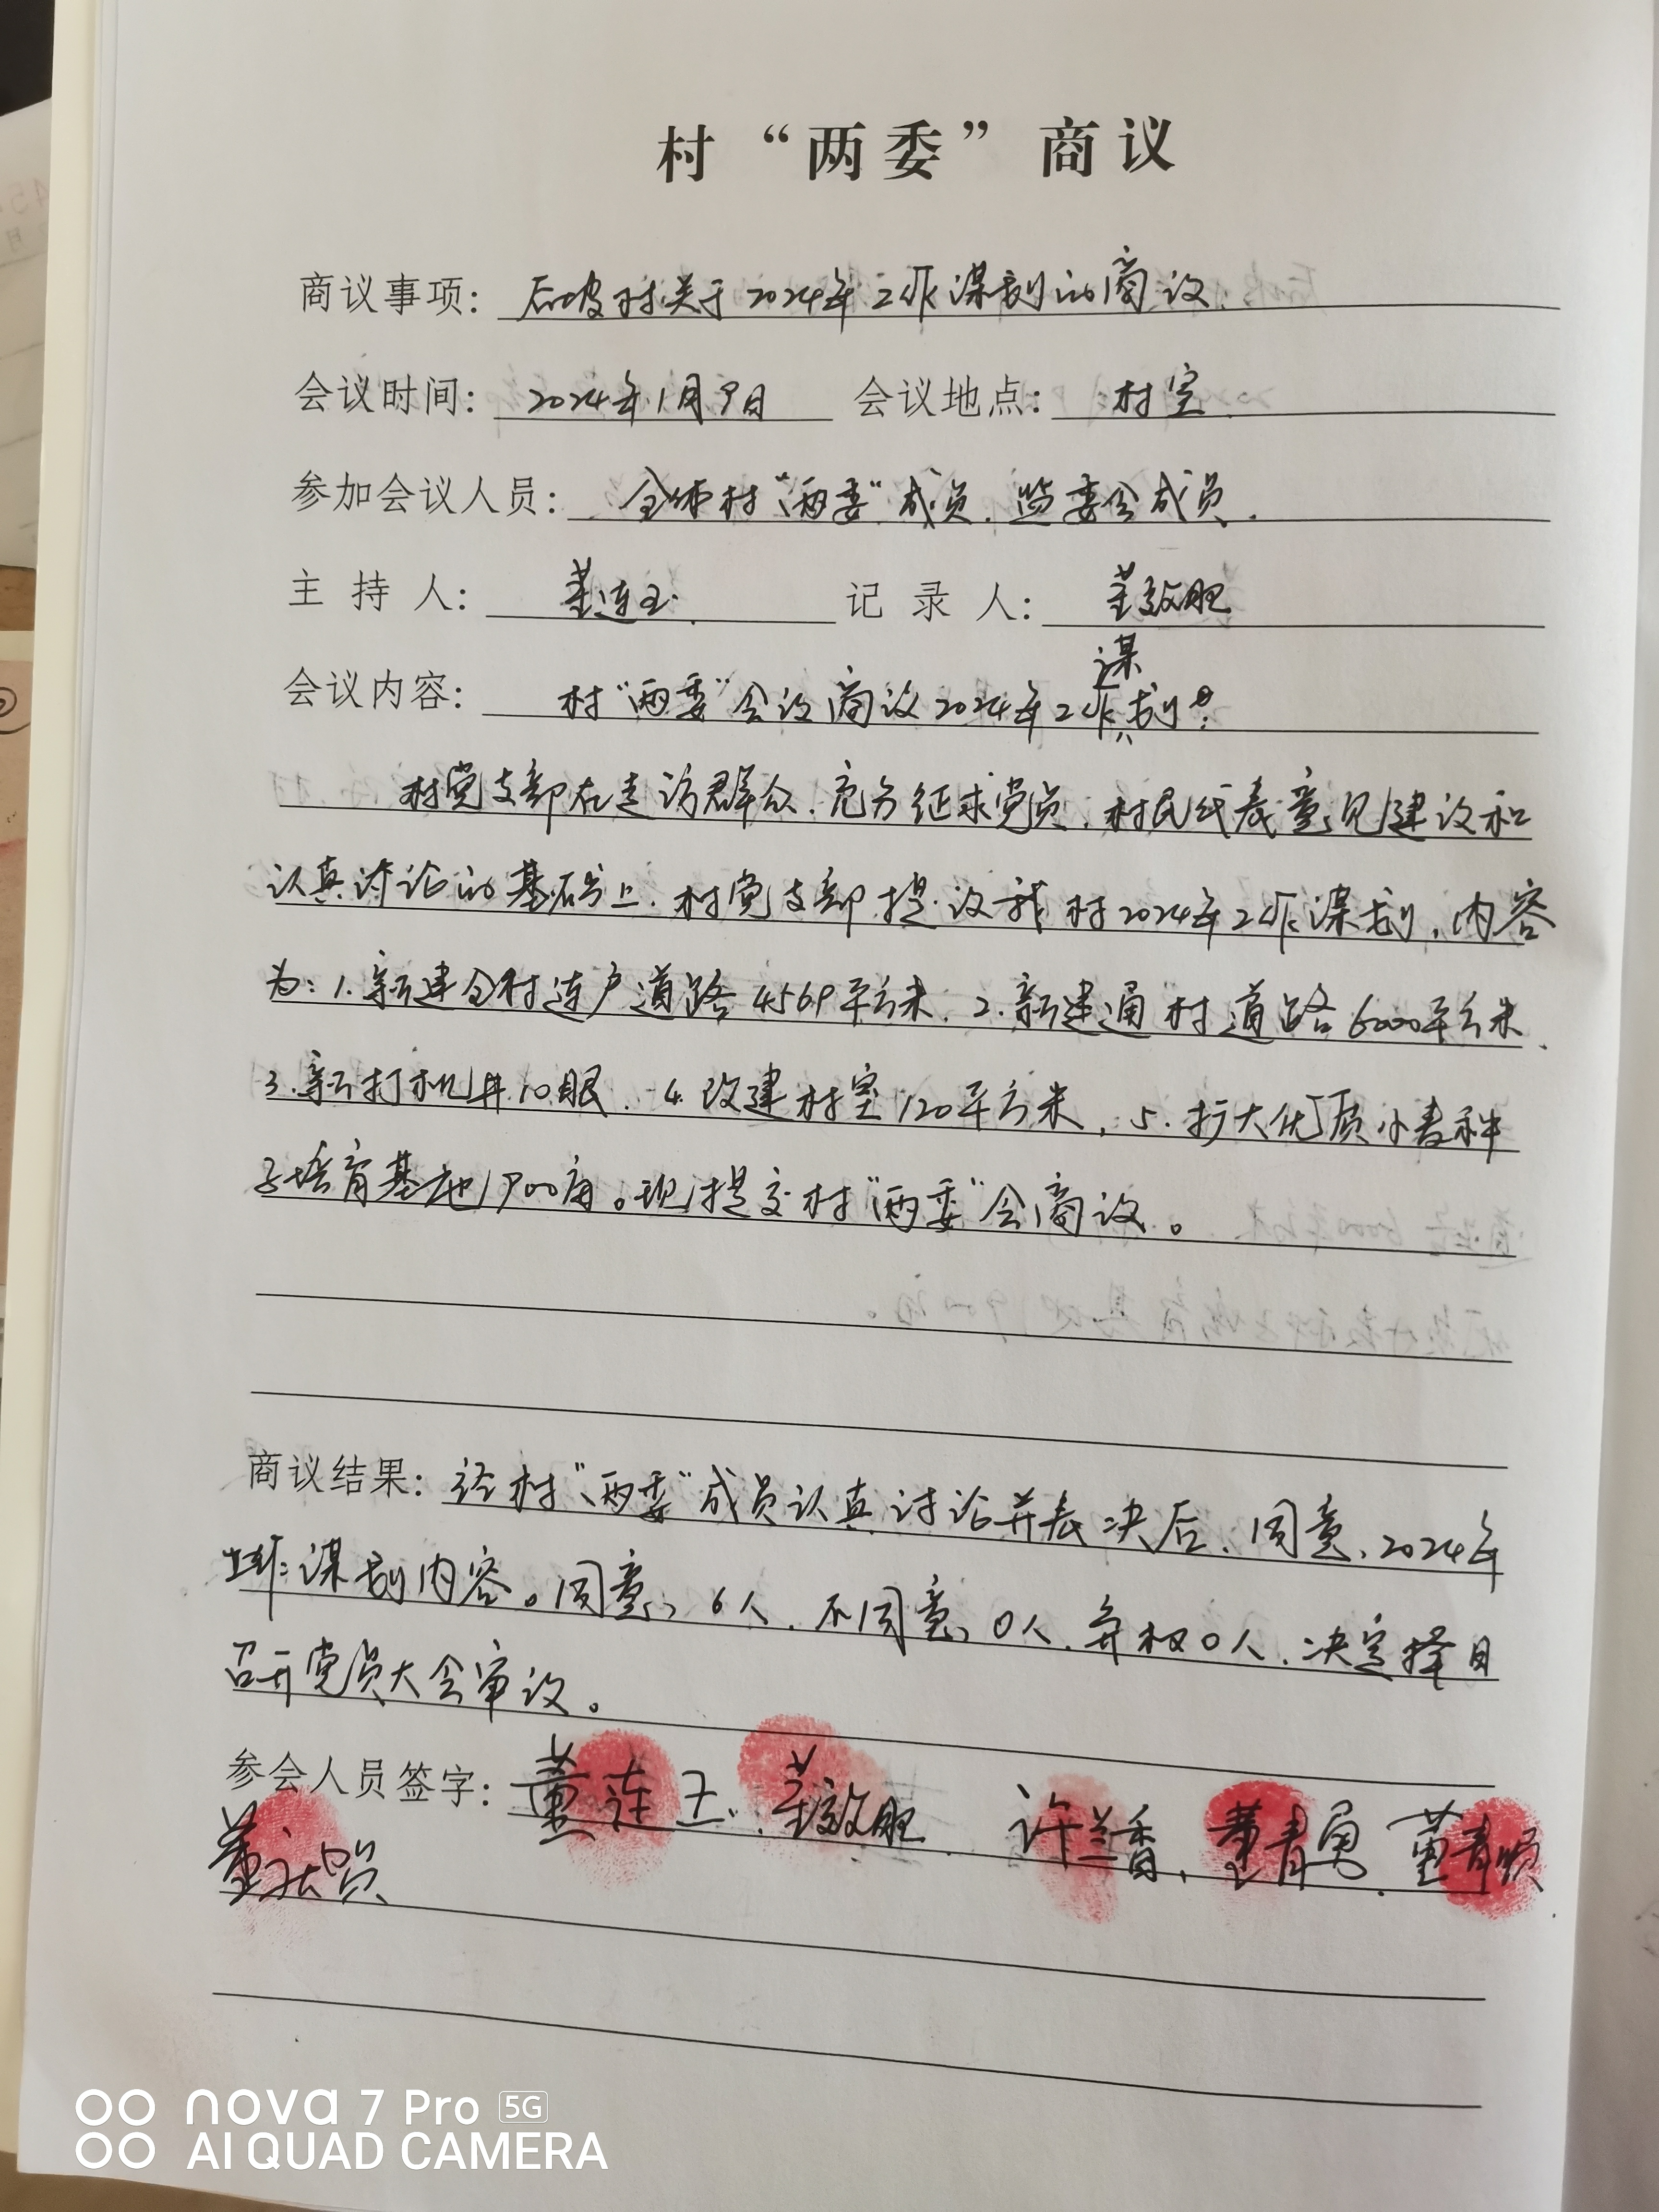 村“两委”商议
商议事项：后坡村关于2024年工作谋划的商议.
会议时间：2024年1月9日 会议地点：村室.
参加会议人员：全体村“两委”成员.监委会成员.
主 持 人：董连玉. 记 录 人：董敬肥
谋
会议内容：村“两委”会议商议2024年工作划:
村党支部在走访群众.充分征求党员.村民代表意见建议和
认真讨论的基础上.村党支部提议我村2024年工作谋划,内容
为:1.新建全村连户道路4569平方米.2.新建通村道路6000平方米.
3.新打机井10眼.4.改建村室120平方米,5.扩大优质小麦种
子培育基地1900亩。现提交村“两委”会商议。
商议结果：经村“两委”成员认真讨论并表决后.同意,2024年
工作谋划内容。同意,6人.不同意,0人.弃权0人.决定择日
召开党员大会审议。
参会人员签字：董连玉.董敬肥 许兰香,董青勇.董青顺
董
nova 7 Pro 5G
AI QUAD CAMERA